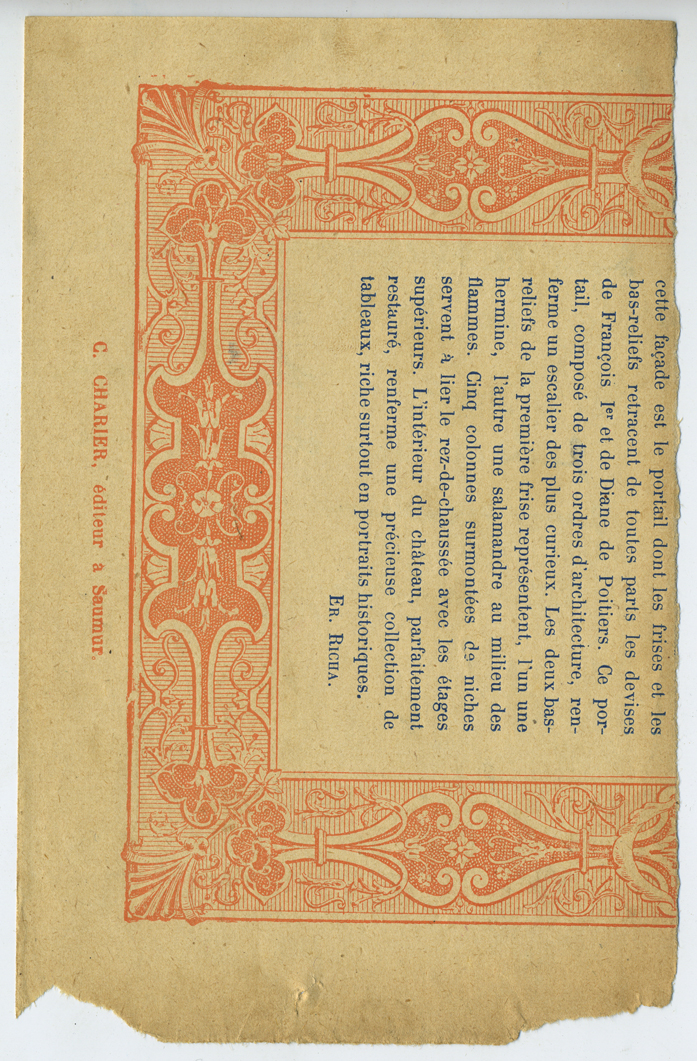 cette façade est le portail dont les frises et les
bas-reliefs retracent de toutes parts les devises
de François Ier et de Diane de Poitiers. Ce por-
tail, composé de trois ordres d'architecture, ren-
ferme un escalier des plus curieux. Les deux bas-
reliefs de la première frise représentent, l'un une
hermine, l'autre une salamandre au milieu des
flammes. Cinq colonnes surmontées de niches
servent à lier le rez-de-chaussée avec les étages
supérieurs. L'intérieur du château, parfaitement
restauré, renferme une précieuse collection de
tableaux, riche surtout en portraits historiques.
ER. RICHA.
C. CHARIER, éditeur à Saumur.